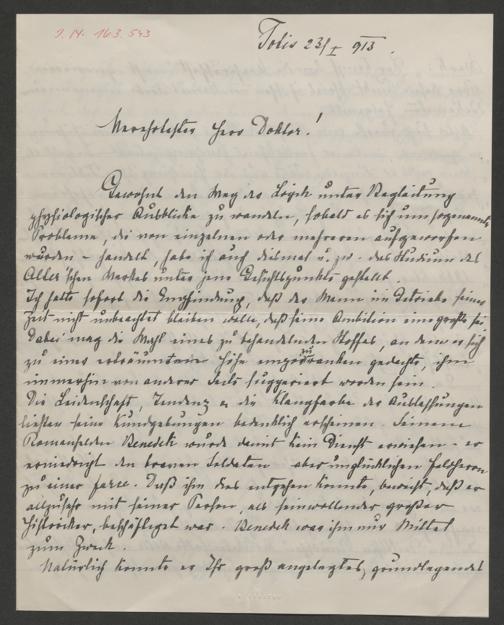 I.N. 163.543
Tolis 23/I 913.
Verehrtester Herr Doktor!
Gewohnt den Weg der Logik unter Begleitung
physiologischer Ausblicke zu wandeln, sobald es sich um sogenannte
Probleme, die von einzelnen oder mehreren aufgeworfen
wurden – handelt, habe ich auch diesmal u. zw. das Studium des
'schen Werkes unter jene Gesichtspunkte gestellt.
Ich hatte sofort die Empfindung, daß der Mann im Getriebe seiner
Zeit nicht unbeachtet bleiben wolle, daß seine Ambition eine große sei.
Dabei mag die Wahl eines zu behandelnden Stoffes, an dem er sich
zu einer erträumten Höhe emporzuranken gedachte, ihm
immerhin von anderer Seite suggeriert worden sein.
Die Leidenschaft, Tendenz u die Klangfarbe der Auslassungen
ließen seine Kundgebungen bedenklich erscheinen. Seinem
Romanhelden Benedek wurde damit kein Dienst erwiesen – er
erniedrigt den braven Soldaten aber unglücklichen Feldherrn
zu einer Farce. Daß ihm das entgehen konnte, beweist, daß er
allzusehr mit seiner Person, als seinwollender großer
Historiker, beschäftigt war. Benedek war ihm nur Mittel
zum Zweck.
Natürlich konnte er Ihr groß angelegtes, grundlegendes